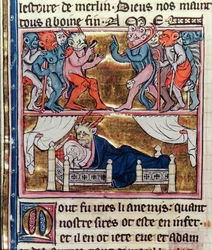 lestoire de merlin. Diens nos maint
tous a boine fin. A M E N
Mout fu iries li anemis. quant
nostre sires ot este en infer.
et il en ot iete eue et adam